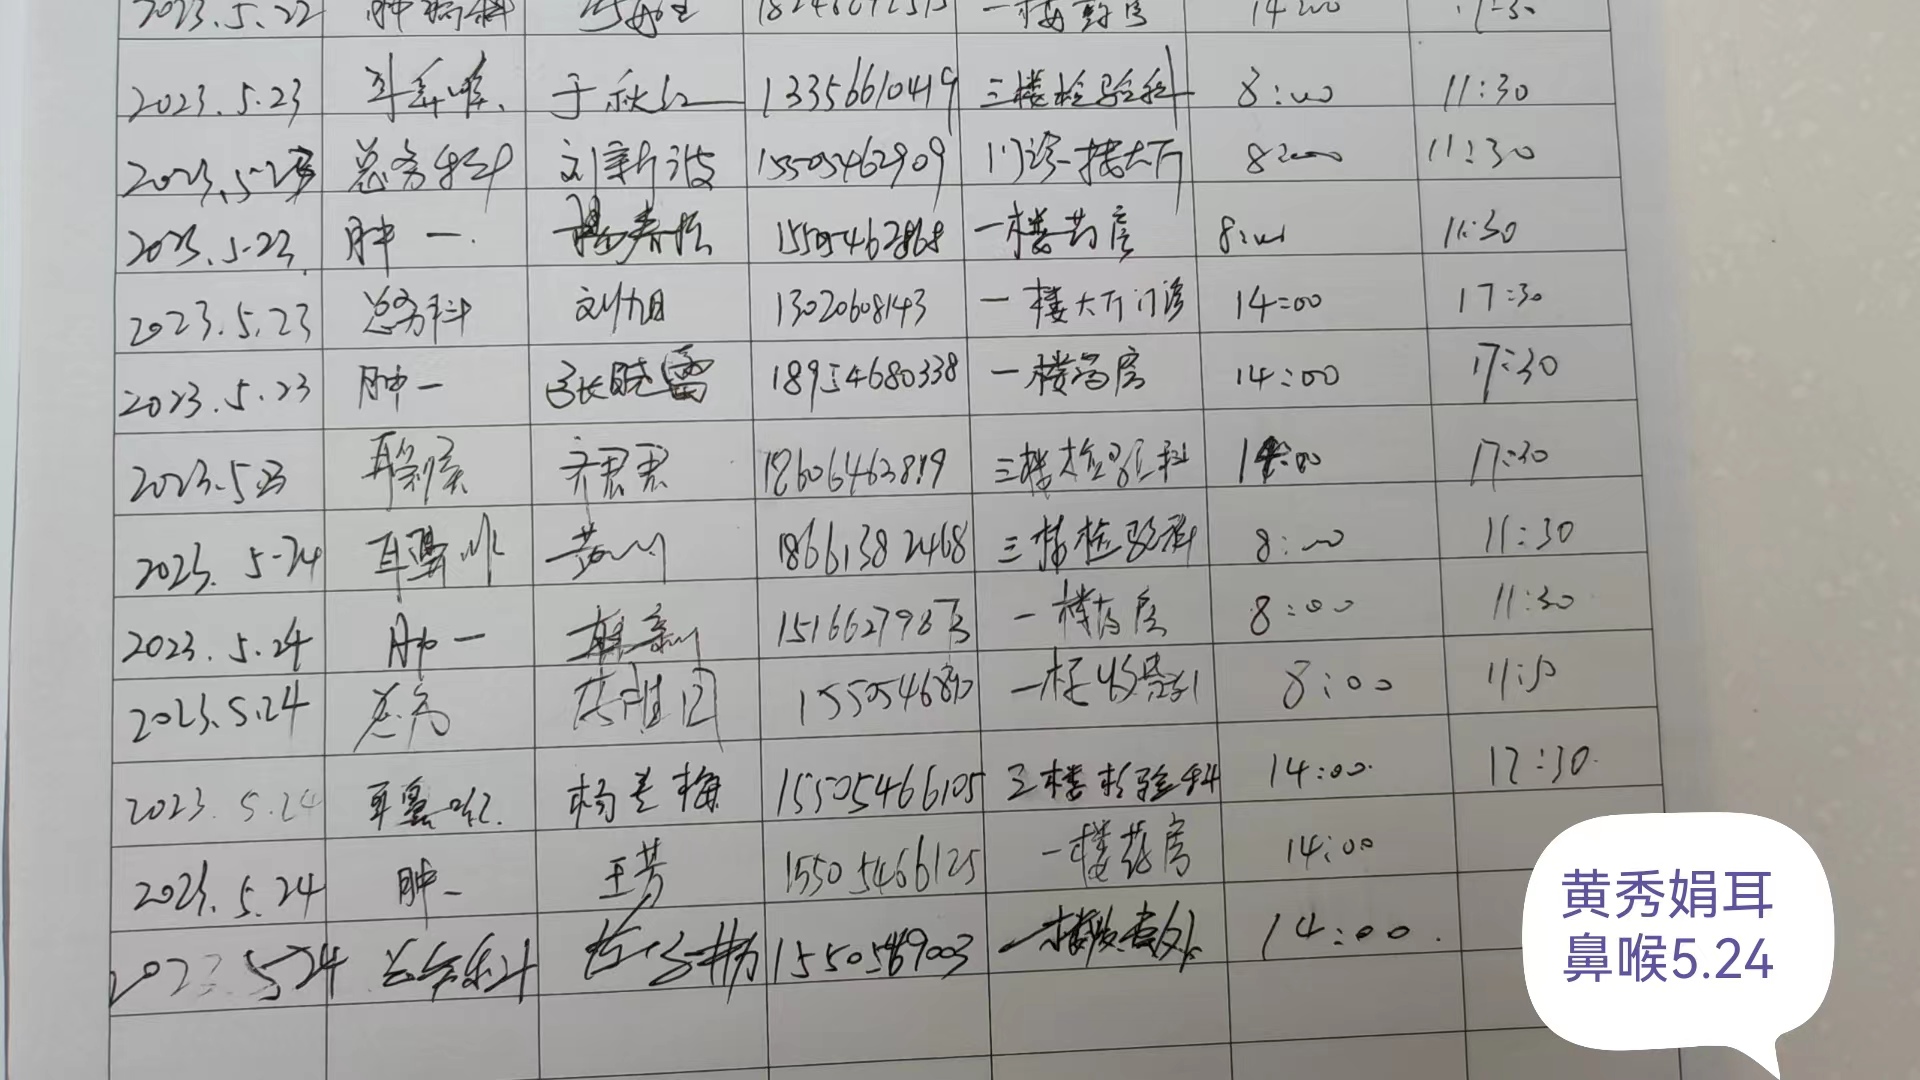 2023.5.22 14:00 17:30
2023.5.23 耳鼻喉 于秋红 13356610419 三楼检验科 8:00 11:30
2023.5.23 总务科 刘新波 15505462909 门诊一楼大厅 8:00 11:30
2023.5.23 肿一 15505462868 一楼药房 8:00 11:30
2023.5.23 总务科 刘旭 13020608143 一楼大厅门诊 14:00 17:30
2023.5.23 肿一 张晓雷 18954680338 一楼药房 14:00 17:30
2023.5.23 耳鼻喉 齐君君 18606463819 三楼检验科 14:00 17:30
2023.5.24 耳鼻喉 18661382468 三楼检验科 8:00 11:30
2023.5.24 肿一 一楼药房 8:00 11:30
2023.5.24 总务 一楼收费 8:00 11:30
2023.5.24 耳鼻喉 杨兰梅 15505466105 三楼检验科 14:00 17:30
2023.5.24 肿一 王芳 15505466125 一楼药房 14:00
2023.5.24 总务科 1550569003 一楼收费处 14:00
黄秀娟耳
鼻喉5.24